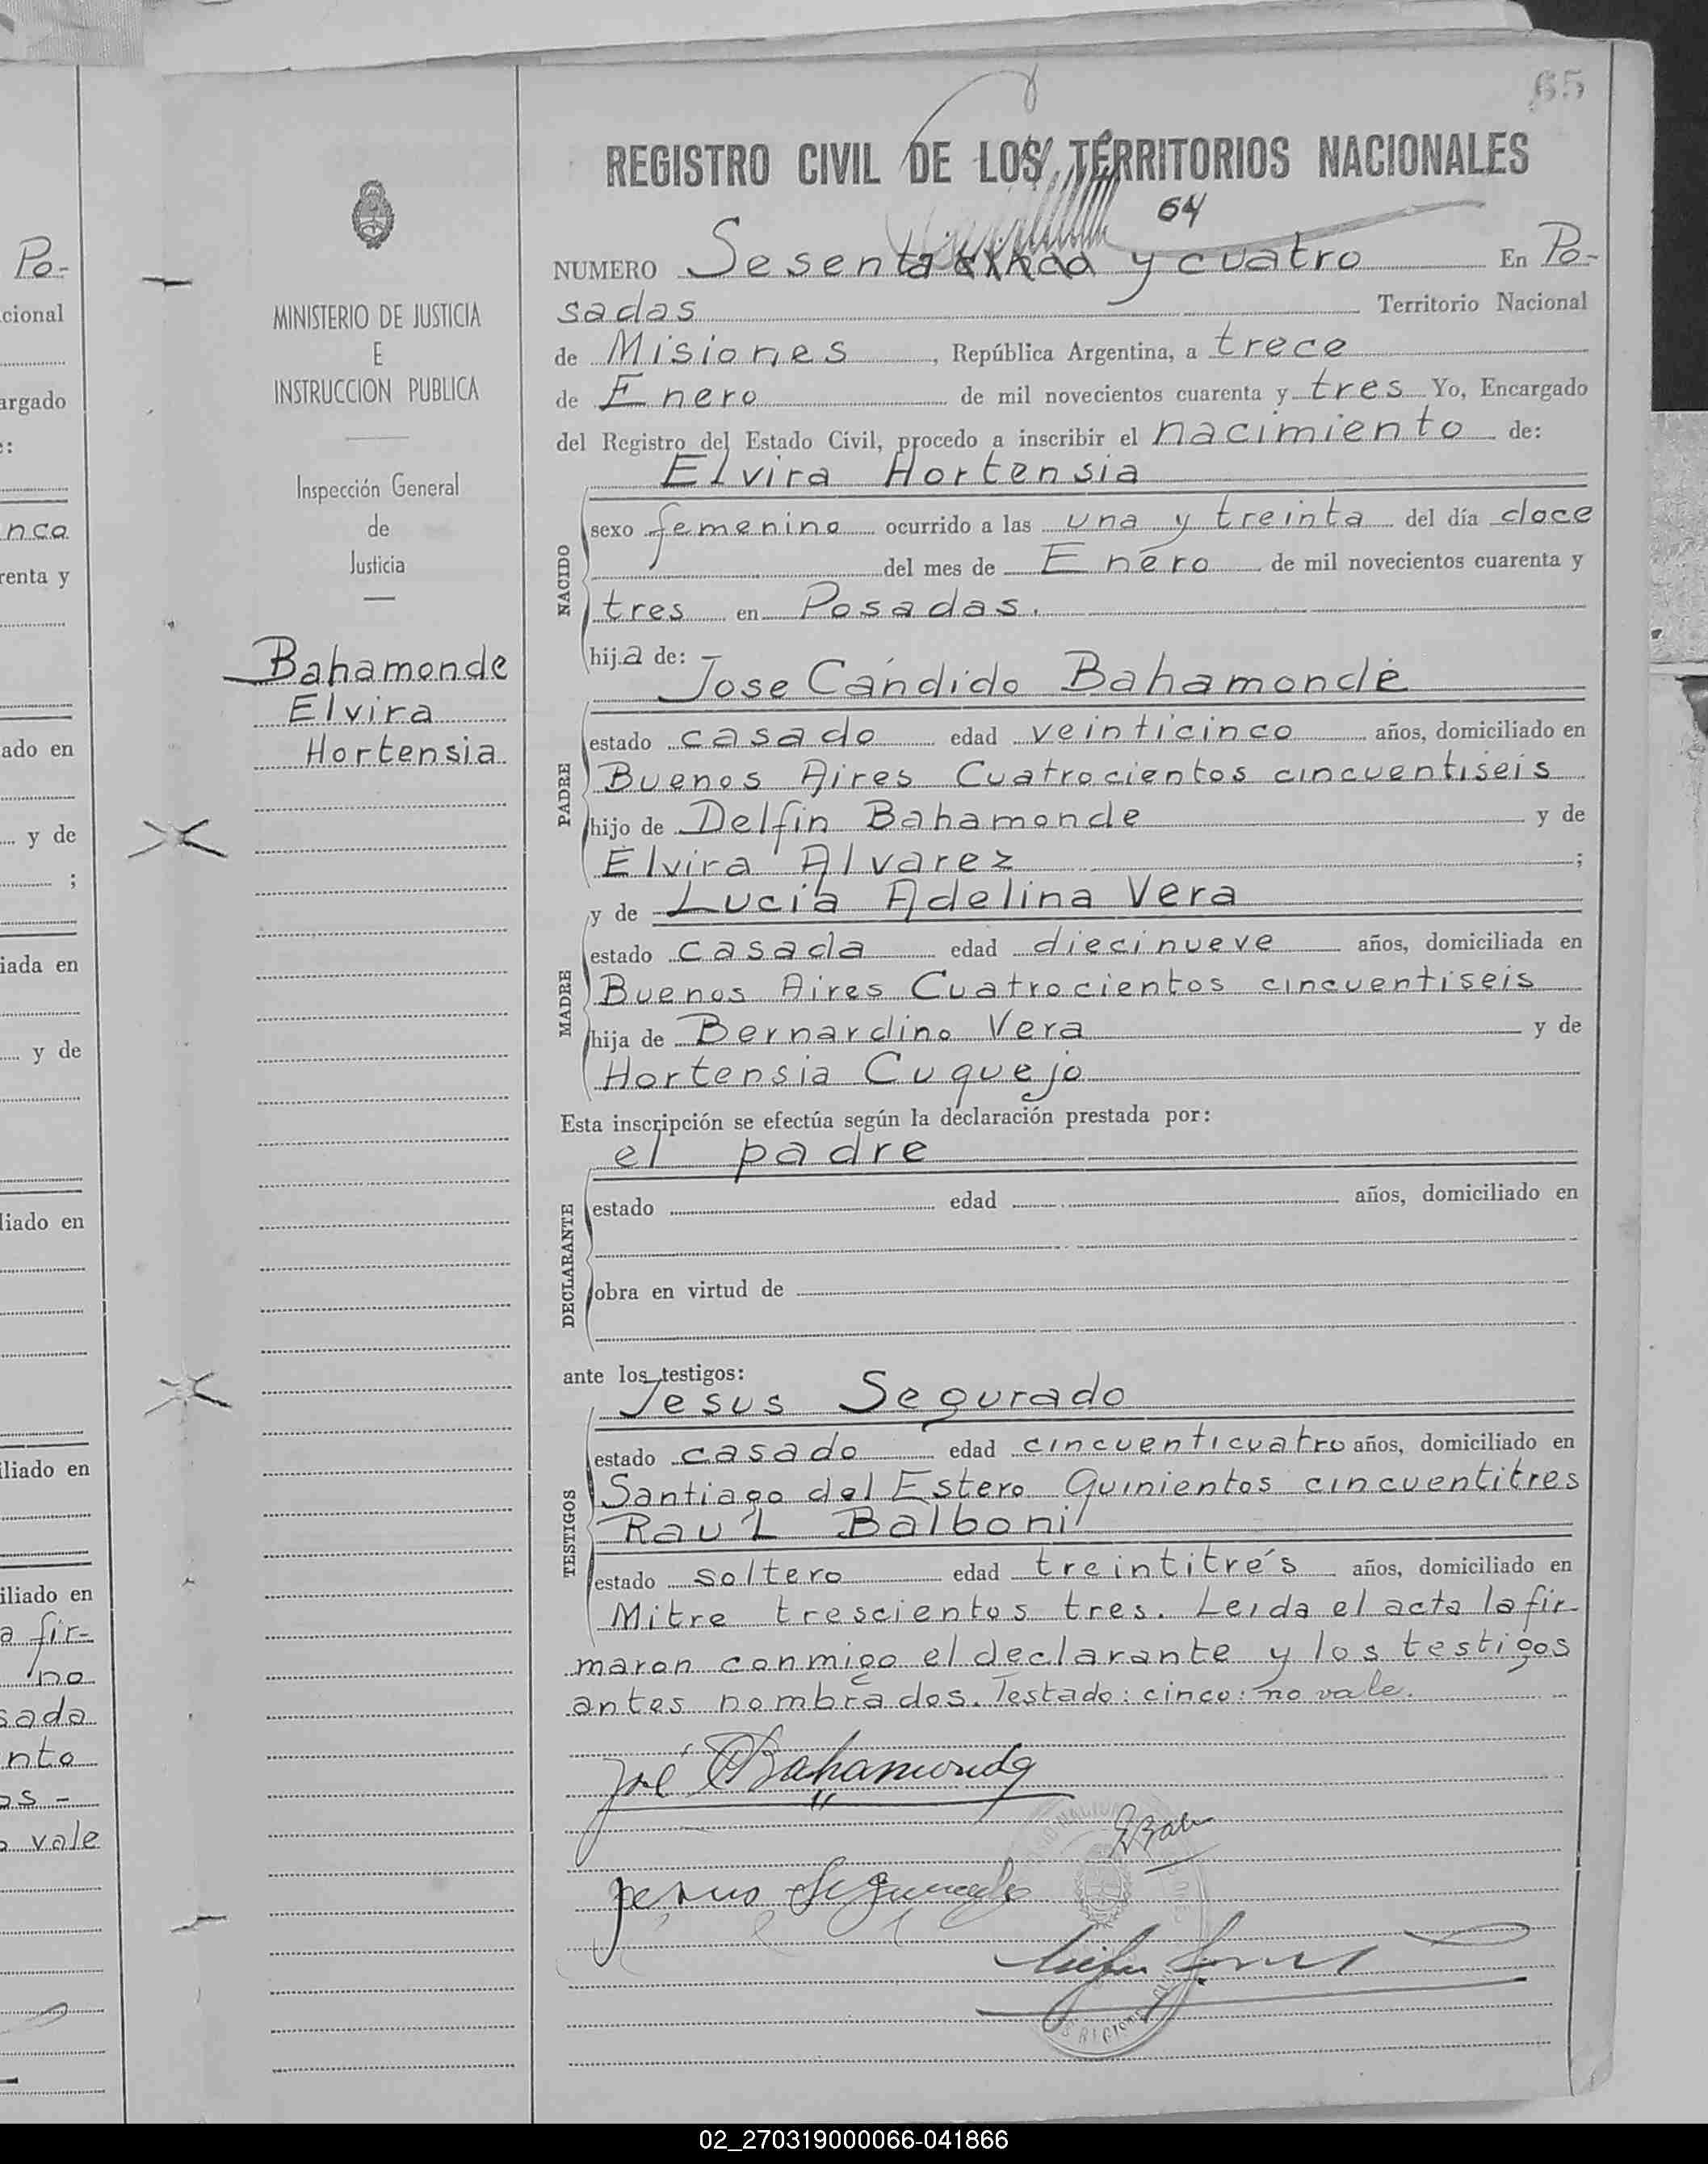 65
REGISTRO CIVIL DE LOS TERRITORIOS NACIONALES
64
NUMERO Sesenta cinco y cuatro En Po-
sadas Territorio Nacional
de Misiones, República Argentina, a trece
de Enero de mil novecientos cuarenta y tres Yo, Encargado
del Registro del Estado Civil, procedo a inscribir el nacimiento de:
Elvira Hortensia
NACIDO
sexo femenino ocurrido a las una y treinta del día doce
del mes de Enero de mil novecientos cuarenta y
tres en Posadas.
hija de:
Jose Cándido Bahamonde
PADRE
estado casado edad veinticinco años, domiciliado en
Buenos Aires Cuatrocientos cincuentiseis
hijo de Delfin Bahamonde y de
Elvira Alvarez ;
y de Lucia Adelina Vera
MADRE
estado casada edad diecinueve años, domiciliada en
Buenos Aires Cuatrocientos cincuentiseis
hija de Bernardino Vera y de
Hortensia Cuquejo
Esta inscripción se efectúa según la declaración prestada por:
el padre
DECLARANTE
estado edad años, domiciliado en
obra en virtud de
ante los testigos:
Jesus Segurado
TESTIGOS
estado casado edad cincuenticuatro años, domiciliado en
Santiago del Estero Quinientos cincuentitres
Raul Balboni
estado soltero edad treintitrés años, domiciliado en
Mitre trescientos tres. Leida el acta la fir-
maron conmigo el declarante y los testigos
antes nombrados. Testado: cinco: no vale.
José Bahamonde
Jesus Segurado
MINISTERIO DE JUSTICIA
E
INSTRUCCION PUBLICA
Inspección General
de
Justicia
Bahamonde
Elvira
Hortensia
Po-
cional
argado
e:
nco
renta y
ado en
y de
;
iada en
y de
liado en
iliado en
iliado en
a fir-
no
sada
nto
os -
o vale
02_270319000066-041866